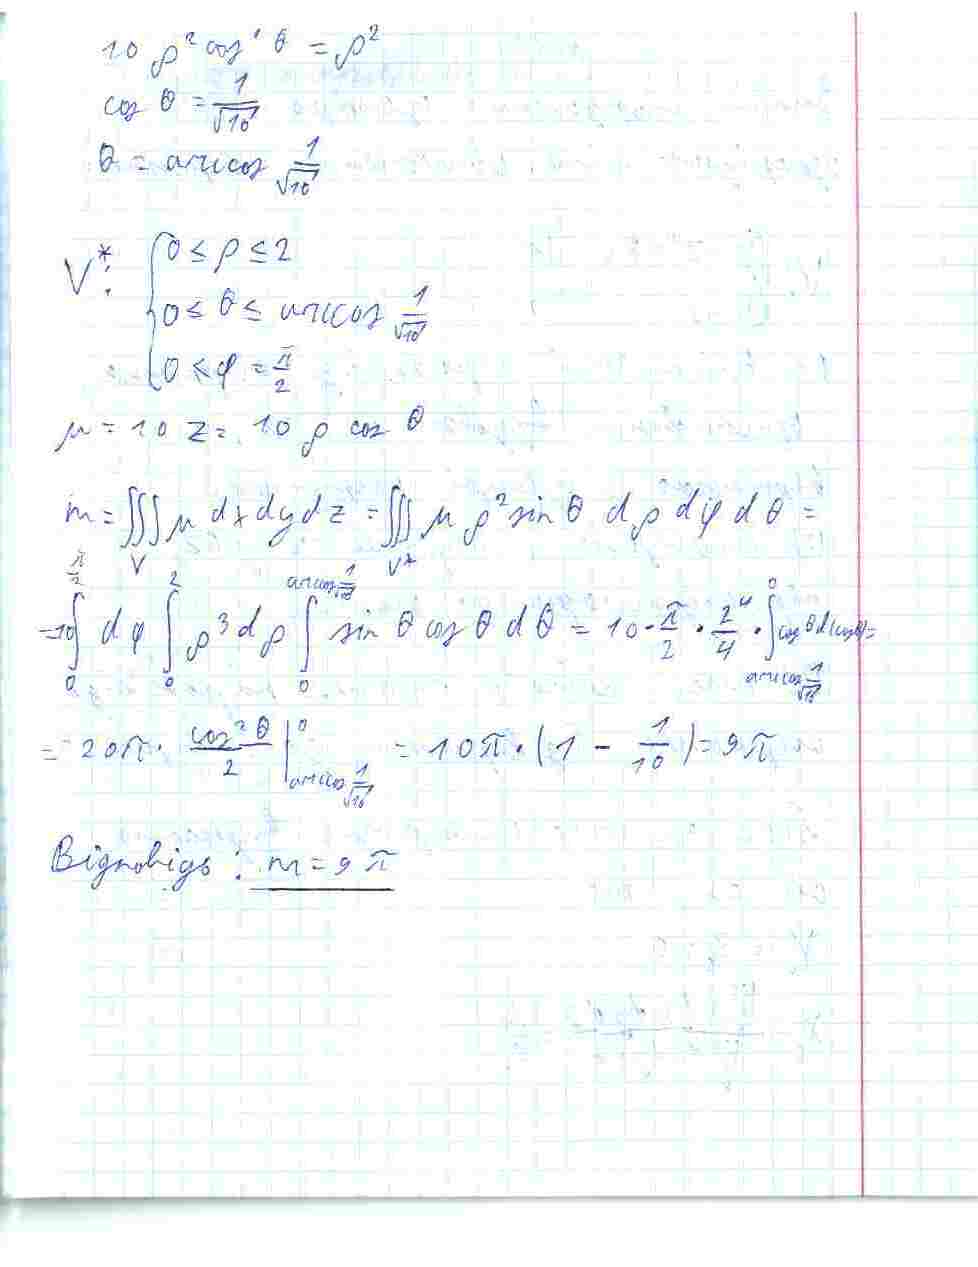 10 ρ² cos² θ = ρ²
cos θ = 1/√10
θ = arccos 1/√10
V*: { 0 ≤ ρ ≤ 2
0 ≤ θ ≤ arccos 1/√10
0 ≤ φ = π/2
μ = 10 z = 10 ρ cos θ
m = ∭_V μ dx dy dz = ∭_V* μ ρ² sin θ dρ dφ dθ =
= 10 ∫_0^{π/2} dφ ∫_0^2 ρ³ dρ ∫_0^{arccos 1/√10} sin θ cos θ dθ = 10 · π/2 · 2⁴/4 · ∫_{arccos 1/√10}^0 cos θ d(cos θ) =
= 20π · cos² θ/2 |_{arccos 1/√10}^0 = 10π · (1 − 1/10) = 9π
Відповідь: m = 9π